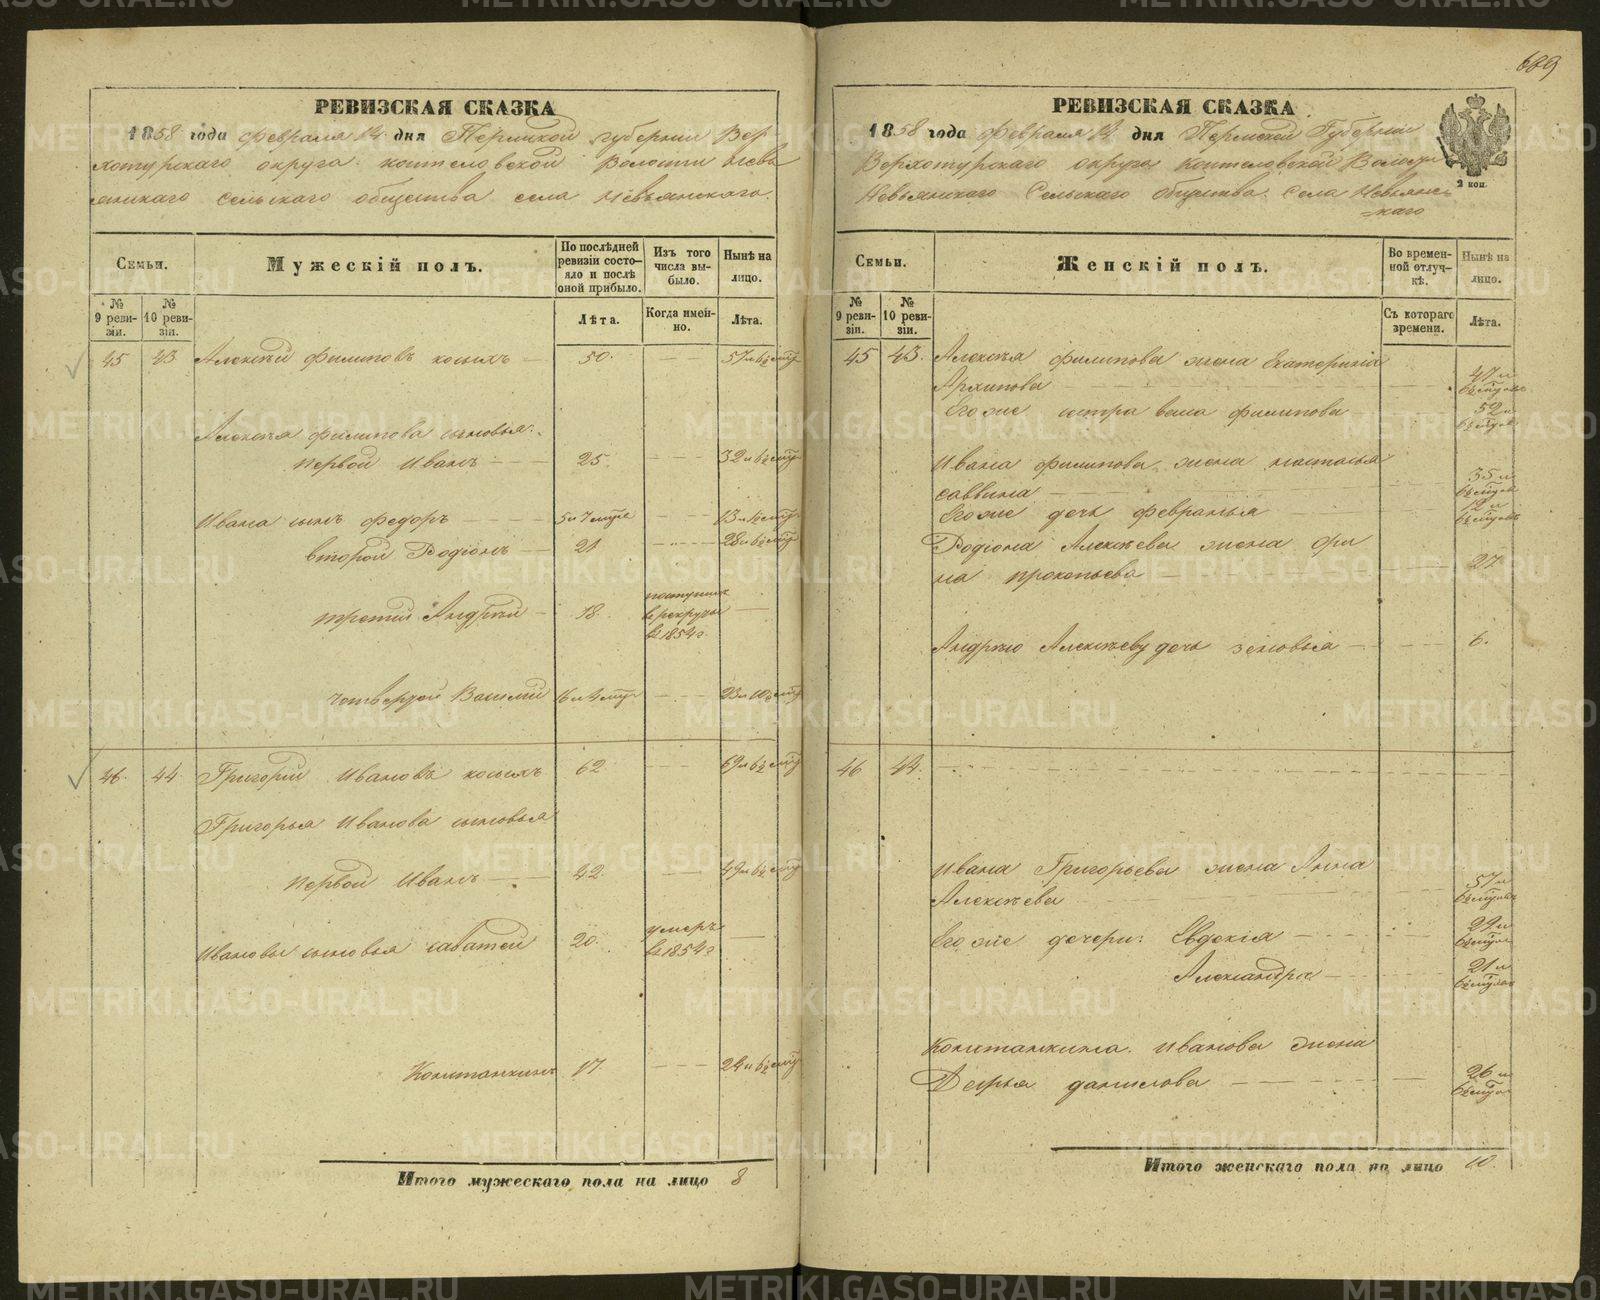 689
РЕВИЗСКАЯ СКАЗКА
1858 года февраля 14 дня Пермской губернии Вер-
хотурскаго округа коптеловской Волости невь
янскаго сельскаго общества села Невьянскаго.
Семьи.
Мужескій полъ.
По послѣдней ревизіи состо-яло и послѣ оной прибыло.
Изъ того числа вы-было.
Нынѣ на лицо.
№ 9 реви-зіи.
№ 10 реви-зіи.
Лѣта.
Когда имен-но.
Лѣта.
45 43 Алексѣй Филиповъ косыхъ 50.
Алексѣя филипова сыновья:
первой Иванъ 25
Ивана сынъ федоръ
второй Родіонъ 21
третій Андрѣй 18. поступилъ
в рекруты
в 1854 г
четвертой Василій
46. 44 Григорій Ивановъ косыхъ 62
Григорья Иванова сыновья
первой Иванъ 42.
Ивановы сыновья саватей 20. умеръ
в 1854 г
Константинъ 17.
Итого мужескаго пола на лицо 8
РЕВИЗСКАЯ СКАЗКА
1858 года февраля 14 дня Пермской Губерніи
Верхотурскаго округа Коптеловской Волости
Невьянскаго Сельскаго общества. Села Невьянс-
каго
2 коп.
Семьи.
Женскій полъ.
Во времен-ной отлуч-кѣ.
Нынѣ на лицо.
№ 9 реви-зіи.
№ 10 реви-зіи.
Съ котораго времени.
Лѣта.
45 43. Алексѣя филипова жена Екатерина
Архипова 47 и
Его же сестра васа филипова 52 и
Ивана филипова жена настасья
саввина 35 и
Его же дочь февранья 12 и
Родіона Алексѣева жена фи
на прокопьева 27
Андрѣю Алексѣеву дочь зеновья 6.
46 44.
Ивана Григорьева жена Анна
Алексѣева 57 и
Его же дочери: Евдокія
Александра 21 и
Константина Иванова жена
Дарья данилова 26 и
Итого женскаго пола на лицо 10.
METRIKI.GASO-URAL.RU